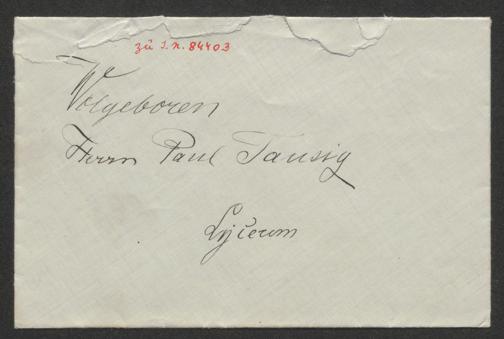 zu I.N. 84403
Wolgeboren
Herrn Paul Tausig
Lyceum